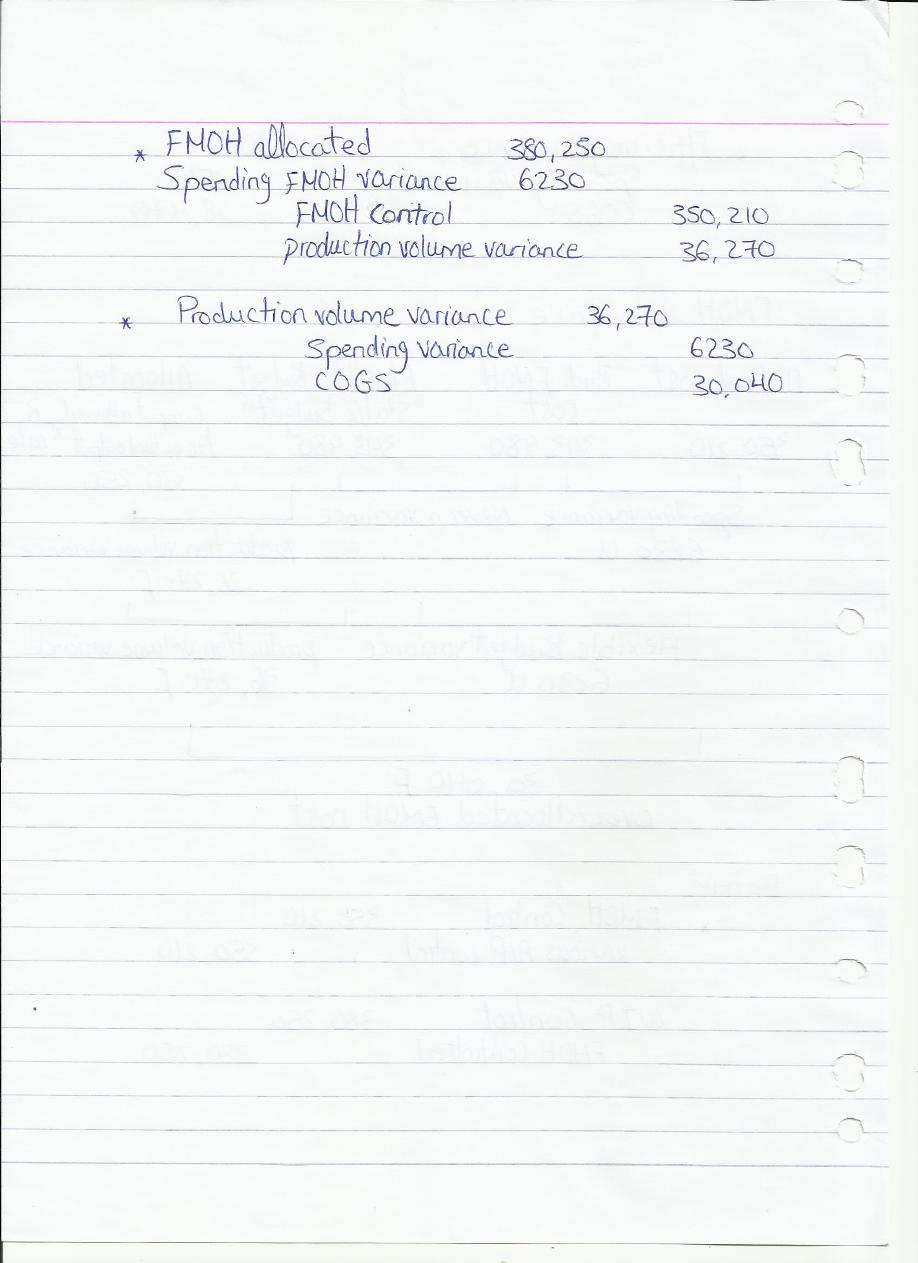 * FMOH allocated 380,250
Spending FMOH variance 6230
FMOH Control 350,210
production volume variance 36,270
* Production volume variance 36,270
Spending variance 6230
COGS 30,040